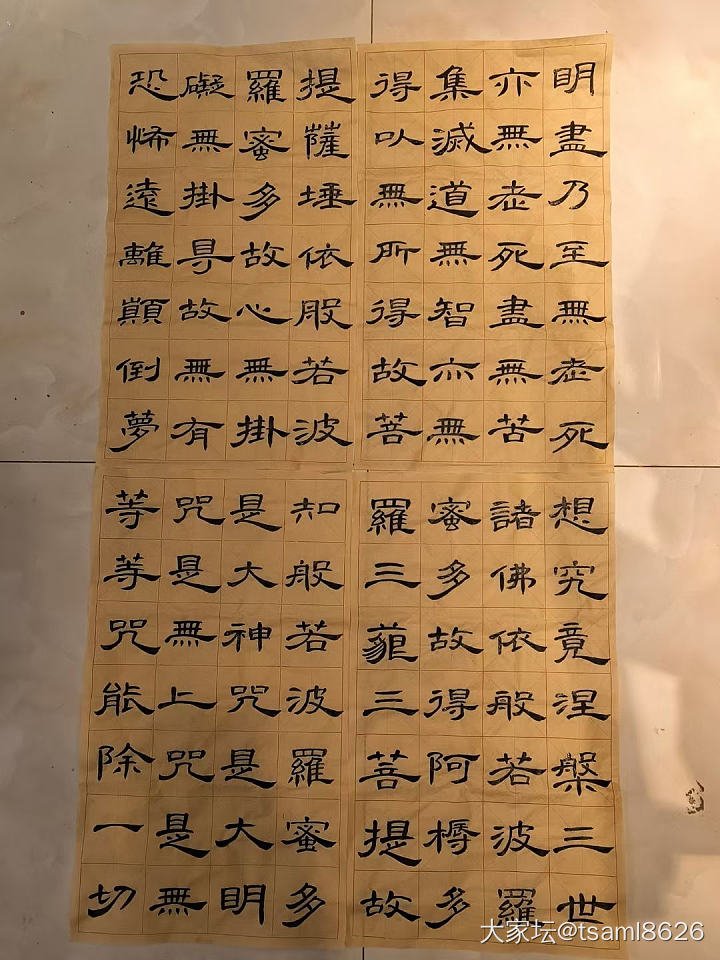 明盡乃至無老死
亦無老死盡無苦
集滅道無智亦無
得以無所得故菩
提薩埵依般若波
羅蜜多故心無掛
礙無掛㝵故無有
恐怖遠離顛倒夢
想究竟涅槃三世
諸佛依般若波羅
蜜多故得阿耨多
羅三藐三菩提故
知般若波羅蜜多
是大神咒是大明
咒是無上咒是無
等等咒能除一切
大家坛@tsaml8626